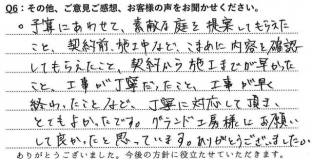 Q6：その他、ご意見ご感想、お客様の声をお聞かせください。
○予算にあわせて、素敵な庭を提案してもらえた
こと、契約前、施工中など、こまめに内容を確認
してもらえたこと、契約から施工までが早かった
こと、工事が丁寧だったこと、工事が早く
終わったことなど、丁寧に対応して頂き、
とてもよかったです。グランド工房様にお願い
して良かったと思っています。ありがとうございました。
ありがとうございました。今後の方針に役立たせていただきます。